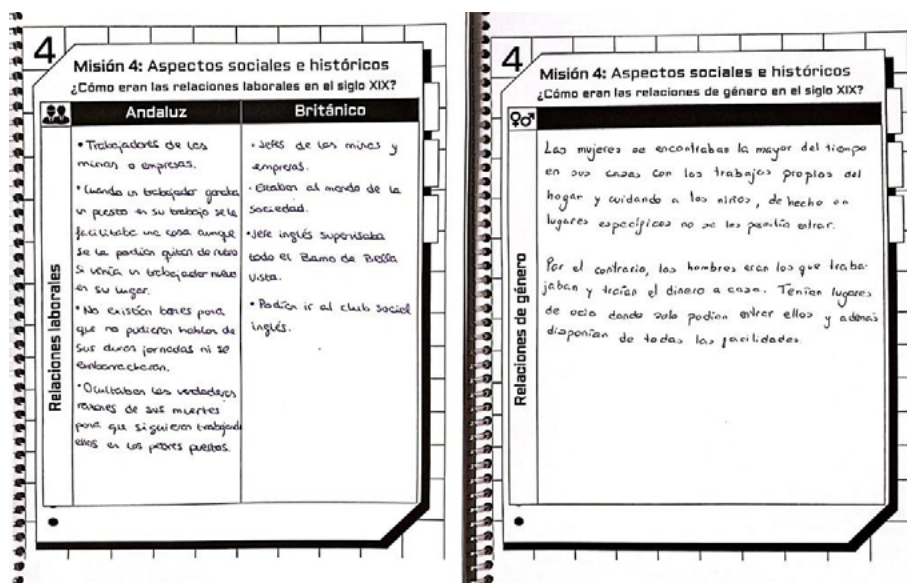 4
Misión 4: Aspectos sociales e históricos
¿Cómo eran las relaciones laborales en el siglo XIX?
Andaluz
Británico
Relaciones laborales
• Trabajadores de las
minas o empresas.
• Cuando un trabajador ganaba
un puesto en su trabajo se le
facilitaba una casa aunque
se la podían quitar de nuevo
si venía un trabajador nuevo
en su lugar.
• No existían bares para
que no pudieran hablar de
sus duras jornadas ni se
emborracharan.
• Ocultaban las verdaderas
razones de sus muertes
para que siguieran trabajando
ellos en los peores puestos.
• Jefes de las minas y
empresas.
• Estaban al mando de la
sociedad.
• Jefe inglés supervisaba
todo el Barrio de Bella
Vista.
• Podían ir al club social
inglés.
4
Misión 4: Aspectos sociales e históricos
¿Cómo eran las relaciones de género en el siglo XIX?
Relaciones de género
Las mujeres se encontraban la mayor del tiempo
en sus casas con los trabajos propios del
hogar y cuidando a los niños, de hecho en
lugares específicos no se les permitía entrar.
Por el contrario, los hombres eran los que traba-
jaban y traían el dinero a casa. Tenían lugares
de ocio donde solo podían entrar ellos y además
disponían de todas las facilidades.